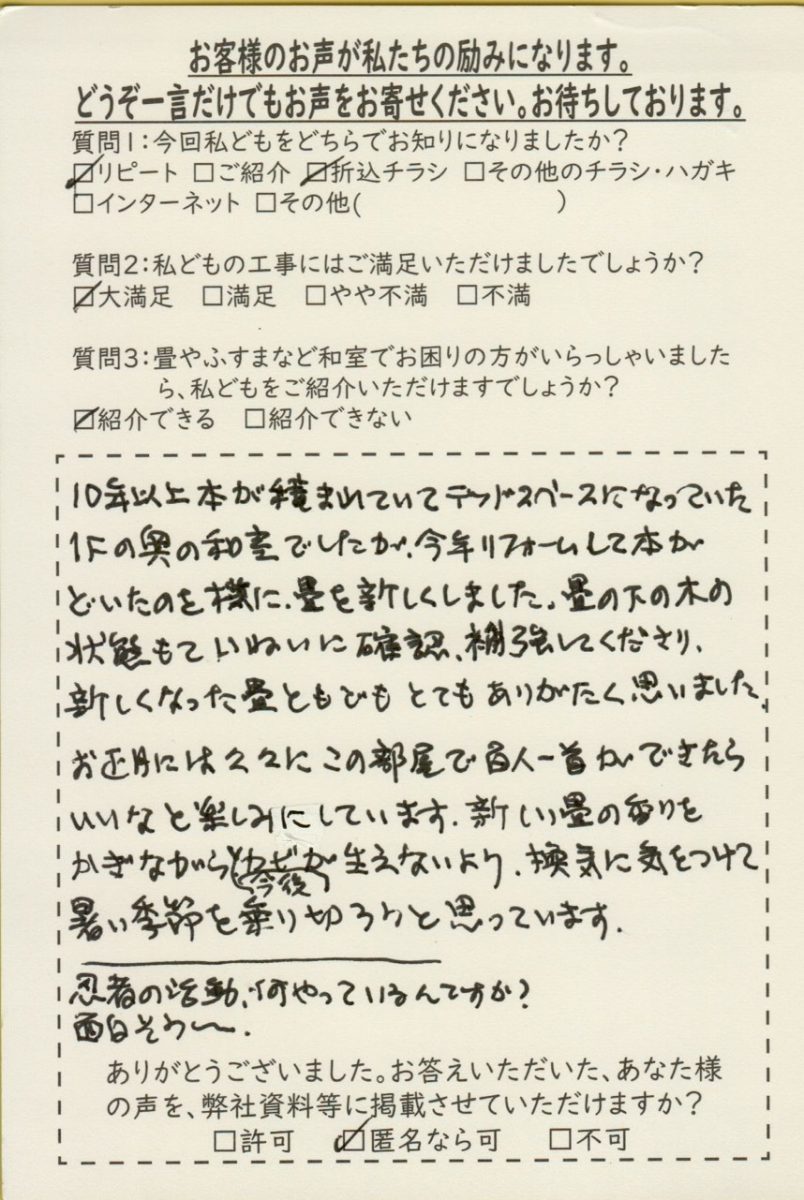 お客様のお声が私たちの励みになります。
どうぞ一言だけでもお声をお寄せください。お待ちしております。
質問1：今回私どもをどちらでお知りになりましたか？
☑リピート □ご紹介 ☑折込チラシ □その他のチラシ・ハガキ
□インターネット □その他(　　　　　　　　)
質問2：私どもの工事にはご満足いただけましたでしょうか？
☑大満足 □満足 □やや不満 □不満
質問3：畳やふすまなど和室でお困りの方がいらっしゃいました
ら、私どもをご紹介いただけますでしょうか？
☑紹介できる □紹介できない
10年以上本が積まれていてデッドスペースになっていた
1Fの奥の和室でしたが、今年リフォームして本が
どいたのを機に、畳を新しくしました。畳の下の木の
状態もていねいに確認、補強してくださり、
新しくなった畳ともどもとてもありがたく思いました。
お正月には久々にこの部屋で百人一首ができたら
いいなと楽しみにしています。新しい畳の香りを
かぎながら、カビが生えないより、換気に気をつけて
今後
暑い季節を乗り切ろうと思っています。
忍者の活動、何やっているんですか？
面白そう〜。
ありがとうございました。お答えいただいた、あなた様
の声を、弊社資料等に掲載させていただけますか？
□許可 ☑匿名なら可 □不可